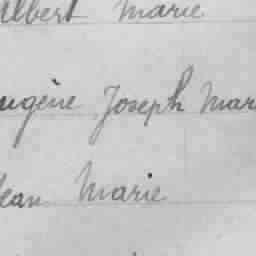 Albert Marie
Eugène Joseph Mar
Jean Marie